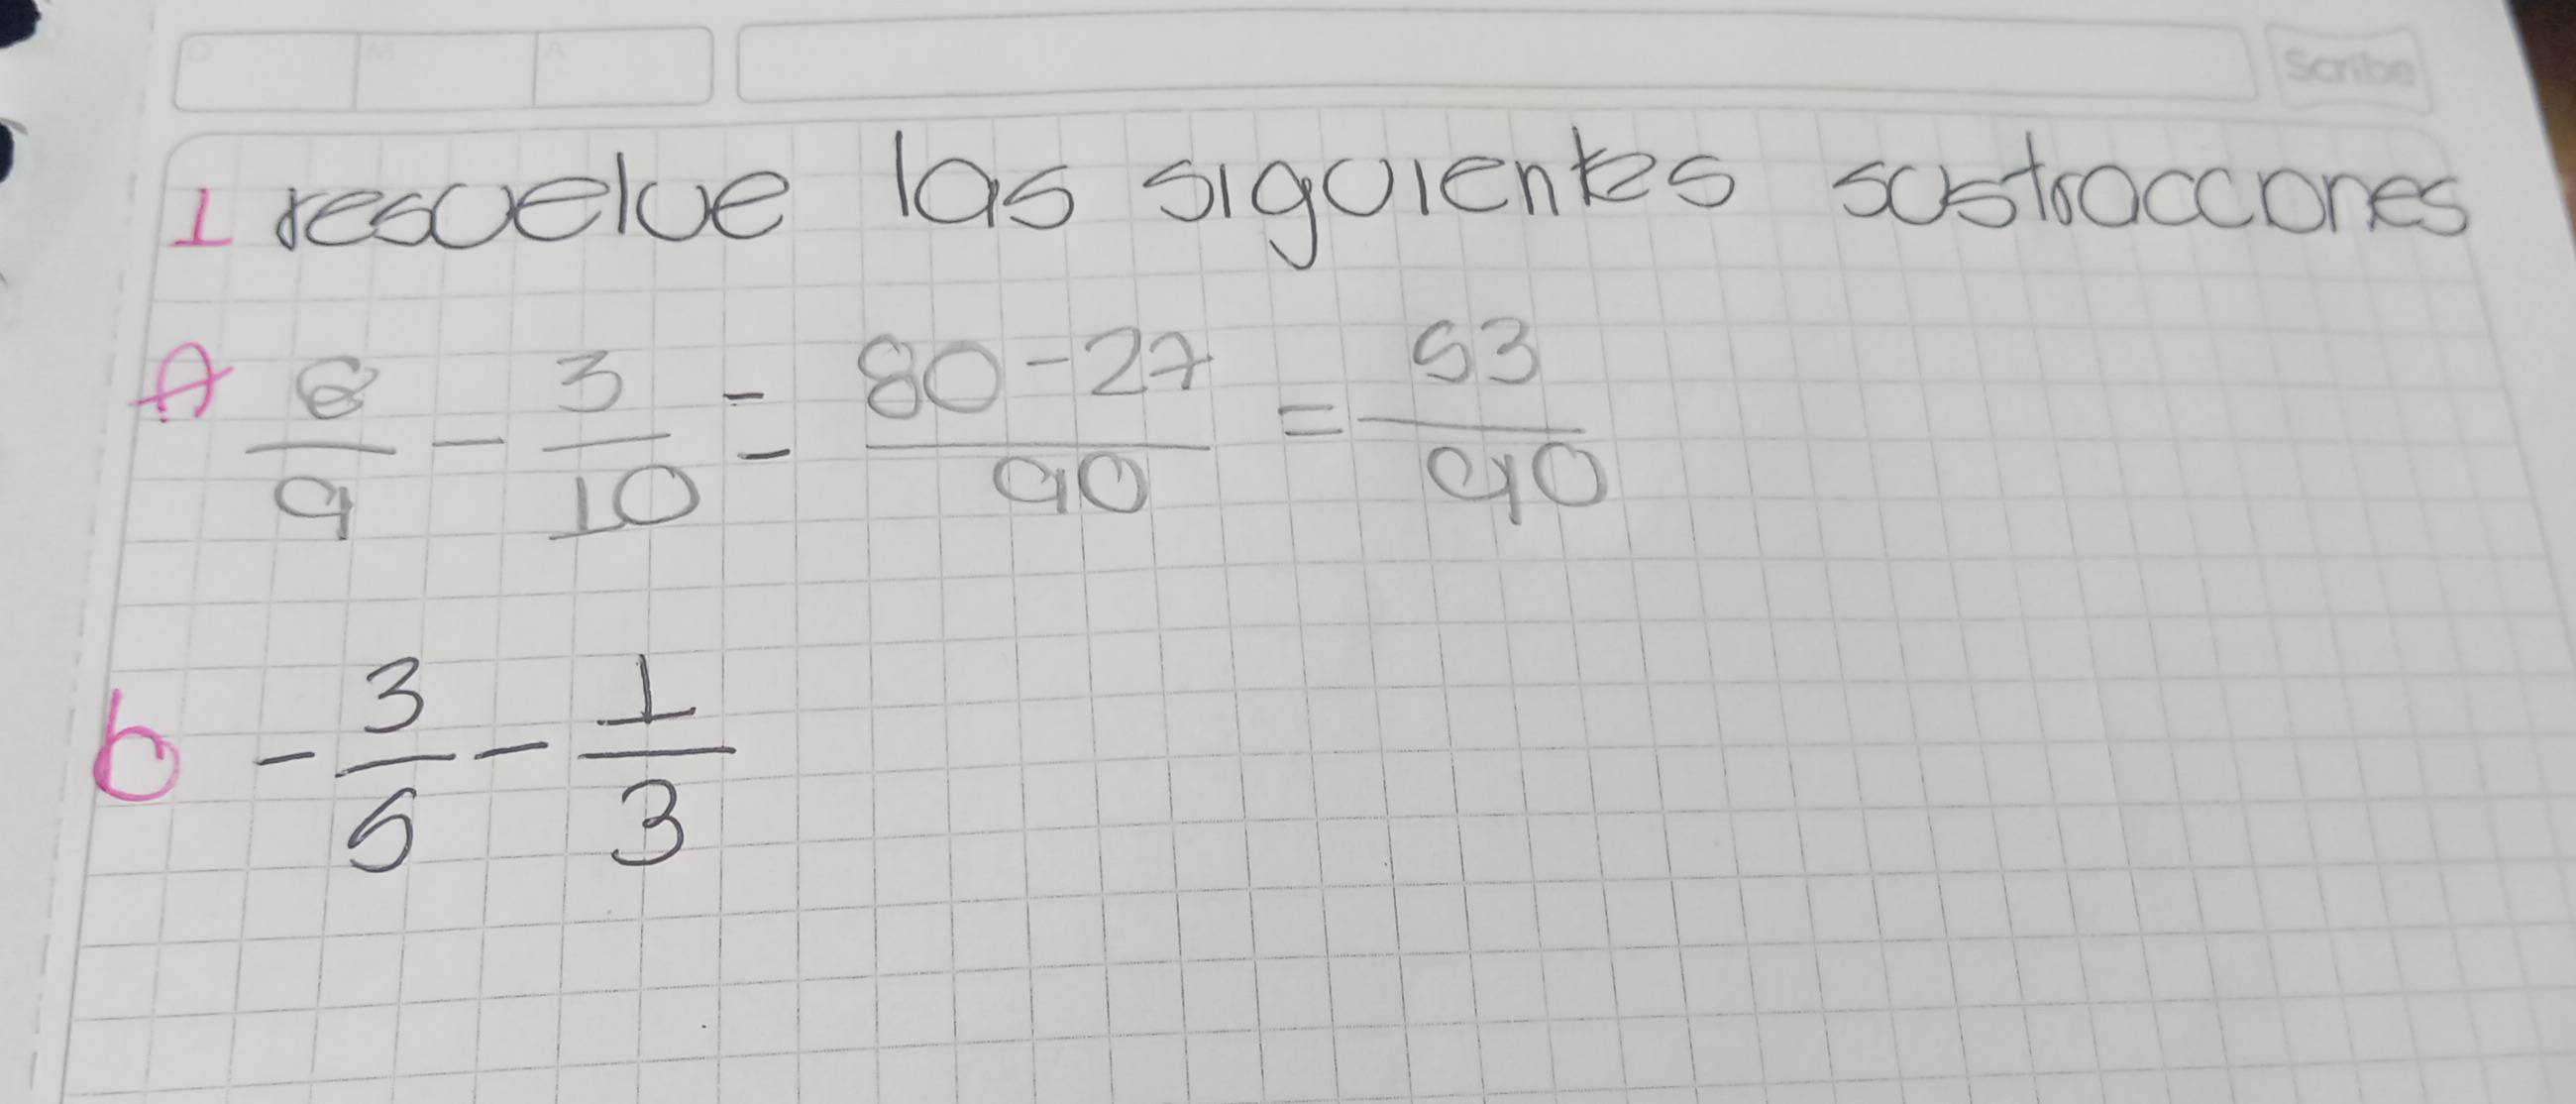 D M A Scribe
1 resuelve las siguientes sustraccones
A 8/9 - 3/10 = 80-27/90 = 53/90
b - 3/5 - 1/3